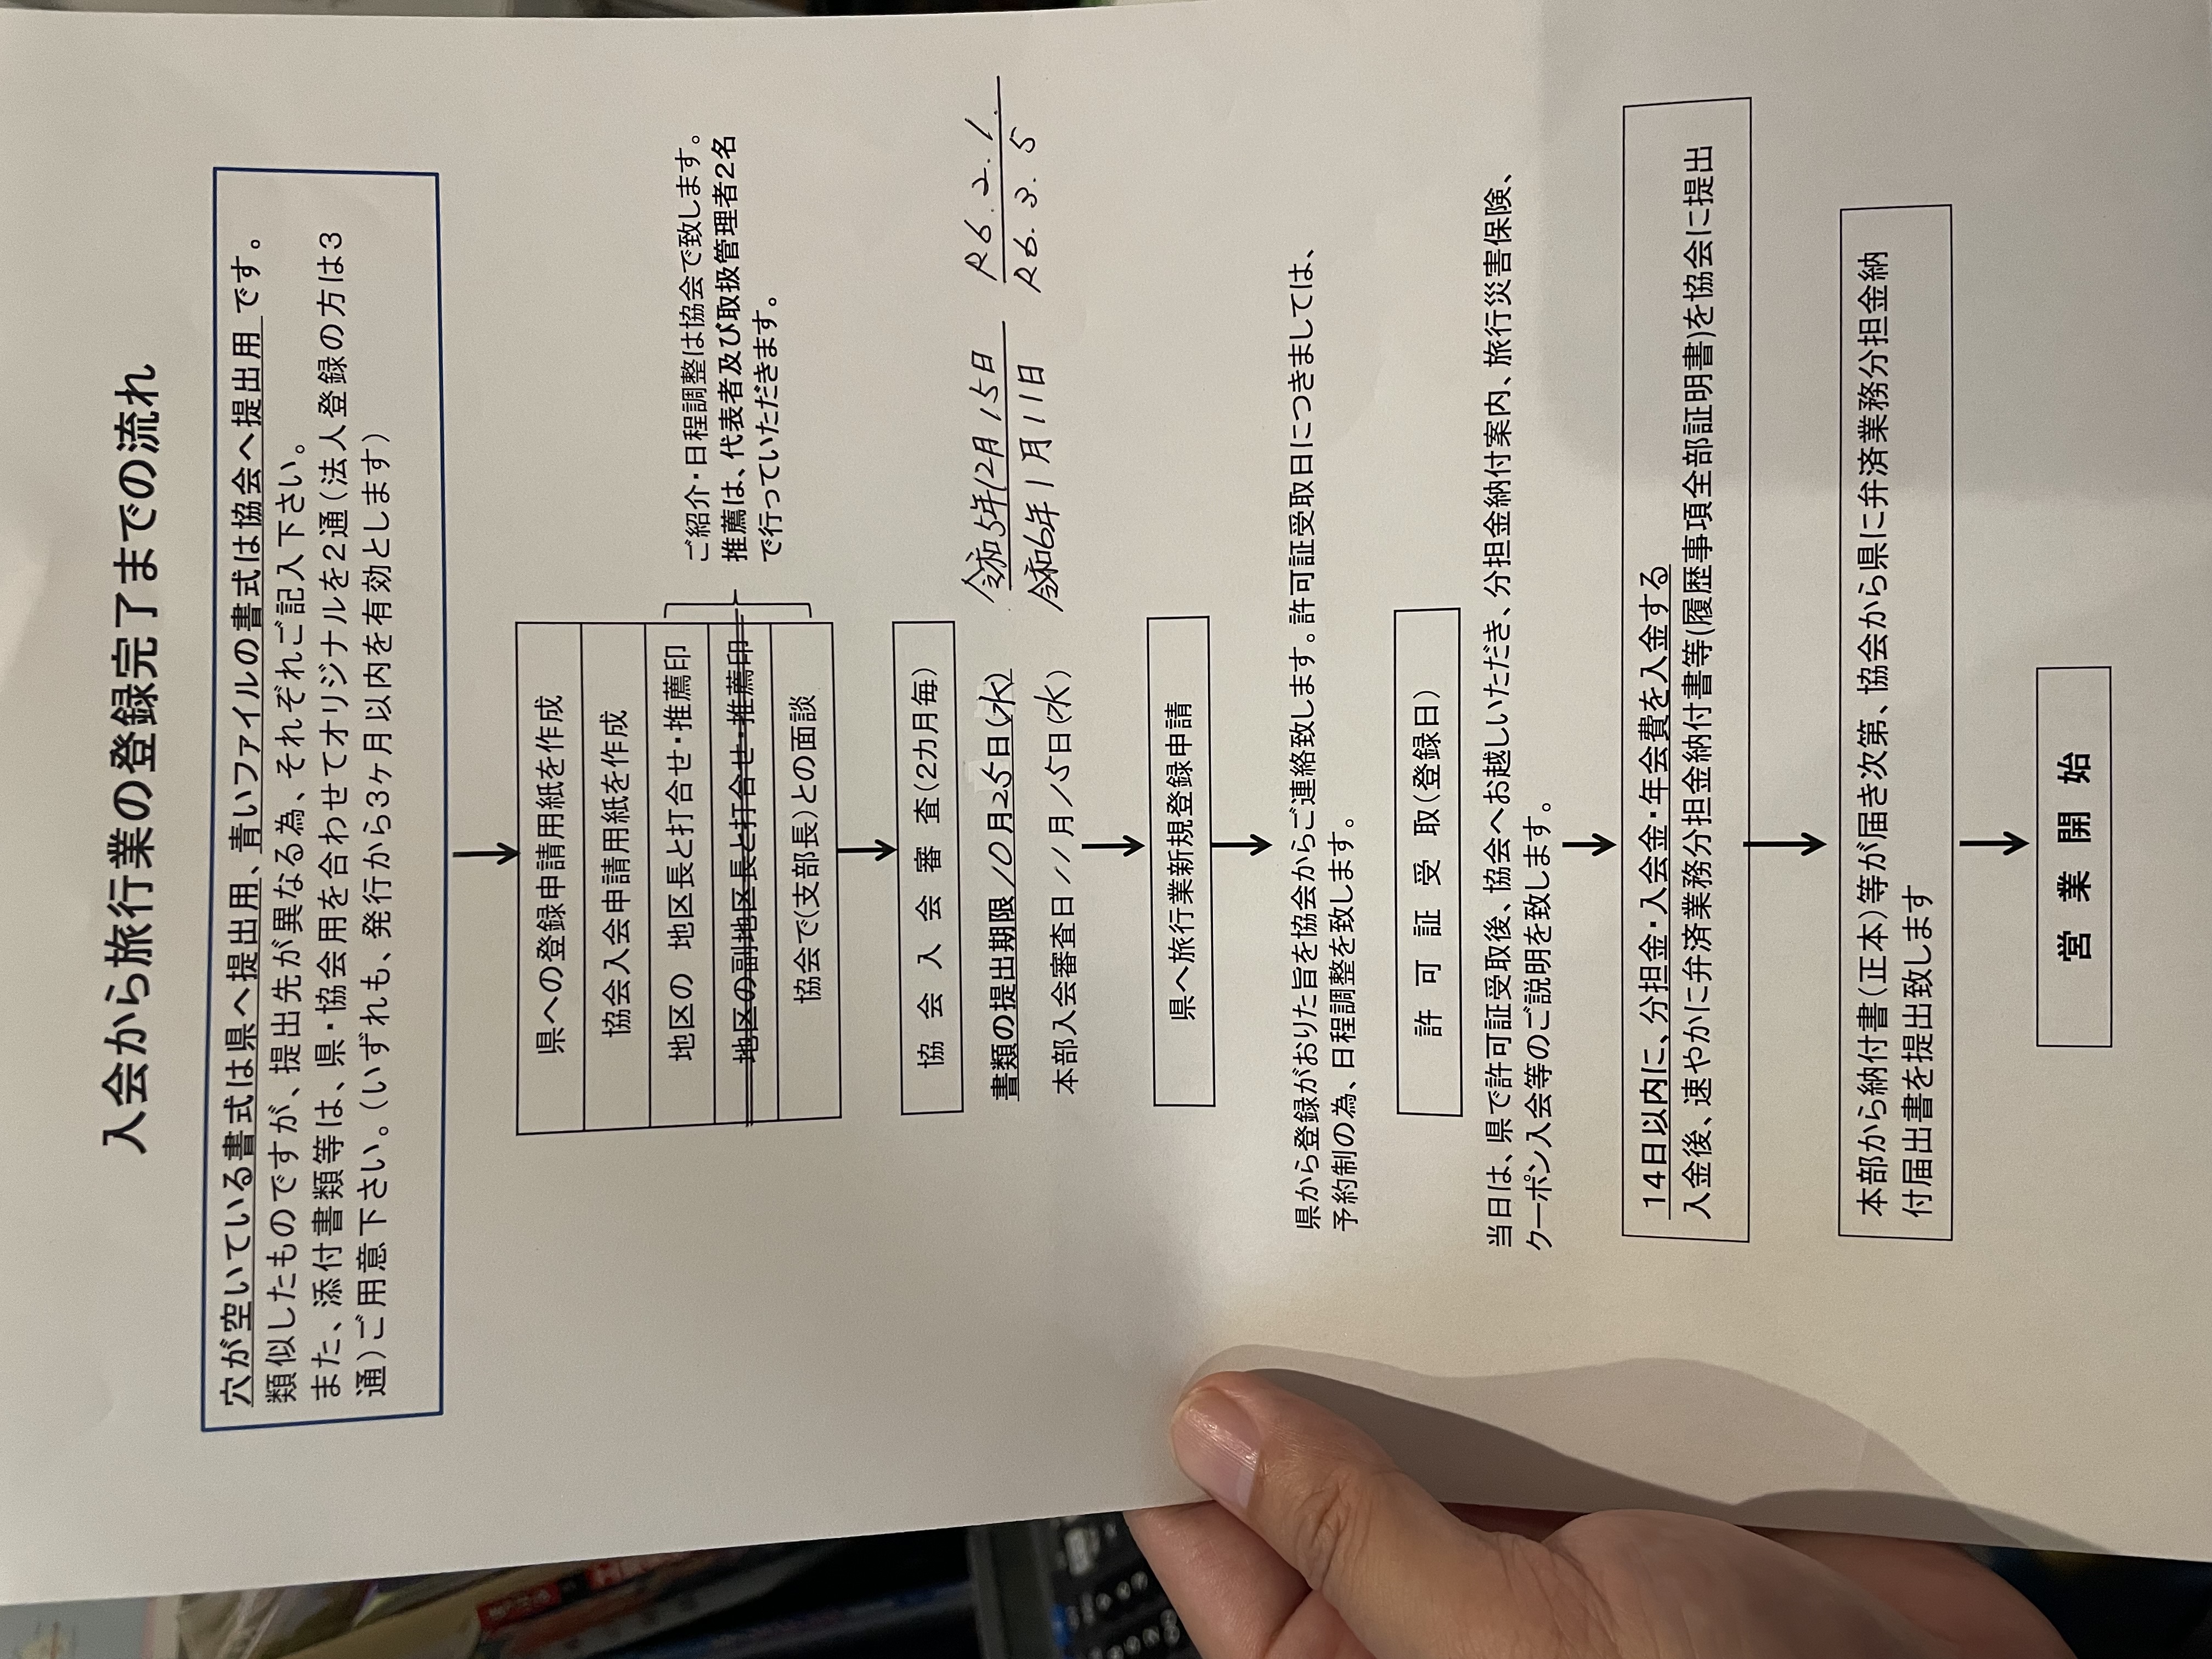 入会から旅行業の登録完了までの流れ
穴が空いている書式は県へ提出用、青いファイルの書式は協会へ提出用 です。
類似したものですが、提出先が異なる為、それぞれご記入下さい。
また、添付書類等は、県・協会用を合わせてオリジナルを2通(法人登録の方は3
通)ご用意下さい。(いずれも、発行から3ヶ月以内を有効とします)
県への登録申請用紙を作成
協会入会申請用紙を作成
地区の 地区長と打合せ・推薦印
地区の副地区長と打合せ・推薦印
協会で(支部長)との面談
ご紹介・日程調整は協会で致します。
推薦は、代表者及び取扱管理者2名
で行っていただきます。
協 会 入 会 審 査(2カ月毎)
書類の提出期限 10月25日(水) 令和5年12月15日 R6.2.1.
本部入会審査日 11月15日(水) 令和6年1月11日 R6.3.5
県へ旅行業新規登録申請
県から登録がおりた旨を協会からご連絡致します。許可証受取日につきましては、
予約制の為、日程調整を致します。
許 可 証 受 取(登録日)
当日は、県で許可証受取後、協会へお越しいただき、分担金納付案内、旅行災害保険、
クーポン入会等のご説明を致します。
14日以内に、分担金・入会金・年会費を入金する
入金後、速やかに弁済業務分担金納付書等(履歴事項全部証明書)を協会に提出
本部から納付書(正本)等が届き次第、協会から県に弁済業務分担金納
付届出書を提出致します
営 業 開 始